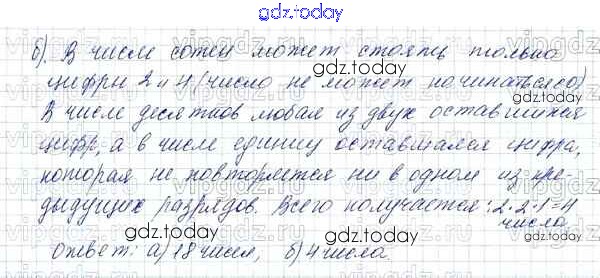 gdz.today
б). В числе сотен может стоять только
цифры 2 и 4 (число не может начинаться с 0)
gdz.today
В числе десятков любая из двух оставшихся
gdz.today
цифр, а в числе единиц оставшаяся цифра,
которая не повторяется ни в одном из пре-
gdz.today
дыдущих разрядов. Всего получается: 2·2·1=4
числа
gdz.today
Ответ: а) 18 чисел, б) 4 числа.
gdz.today